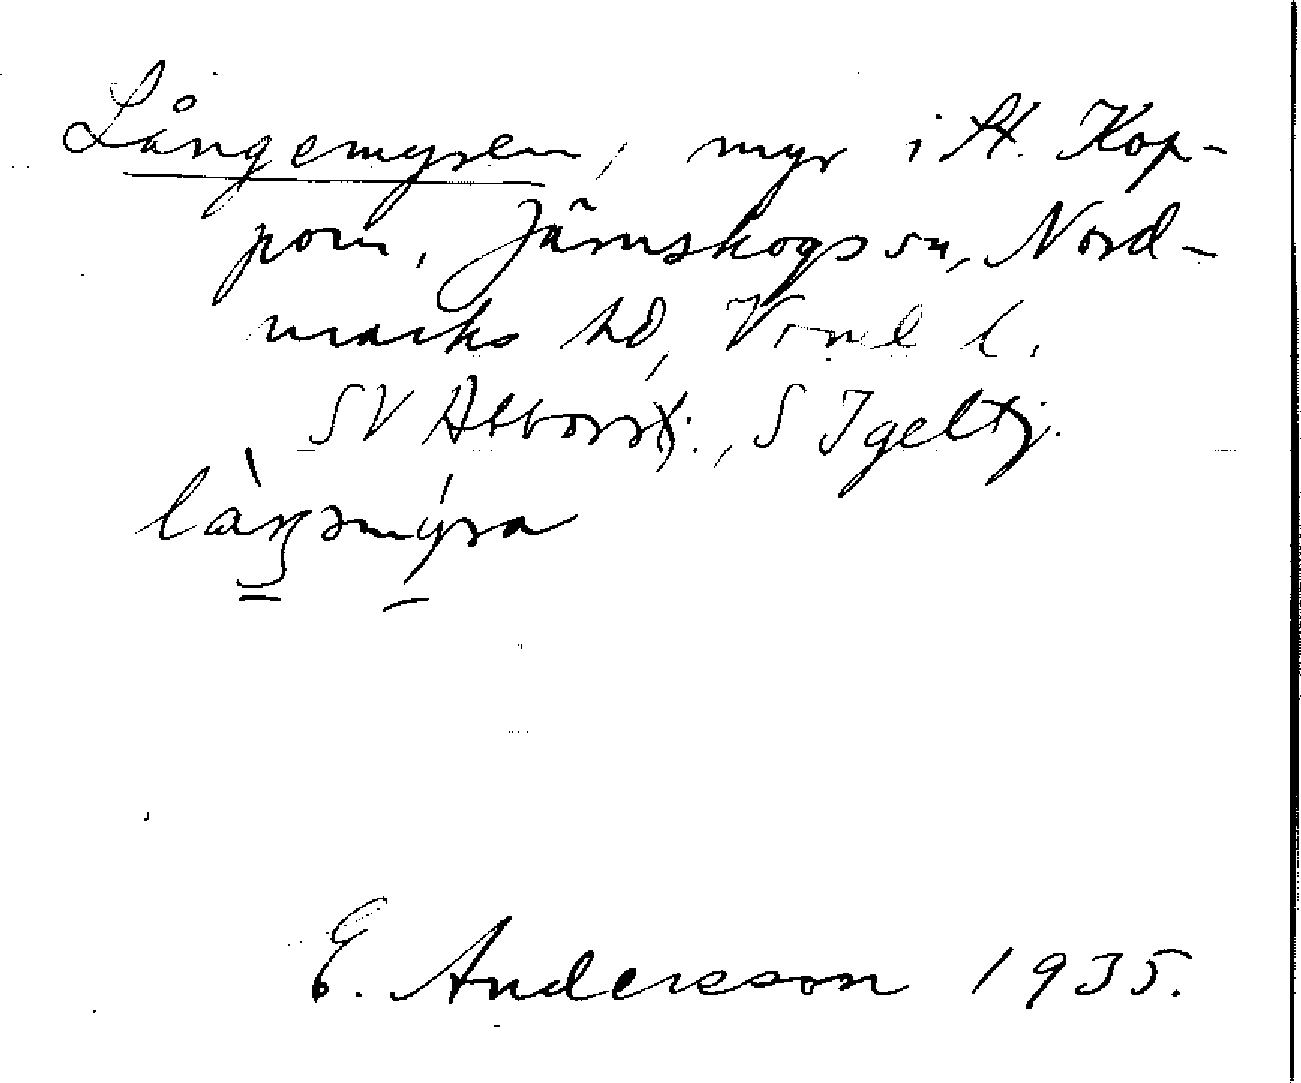 Långemyren, myr i St. Kop-
pom, Järnskogs sn, Nord-
marks hd, Vrml l.
SV Abborrtj., S Igeltj.
E. Andersson 1935.